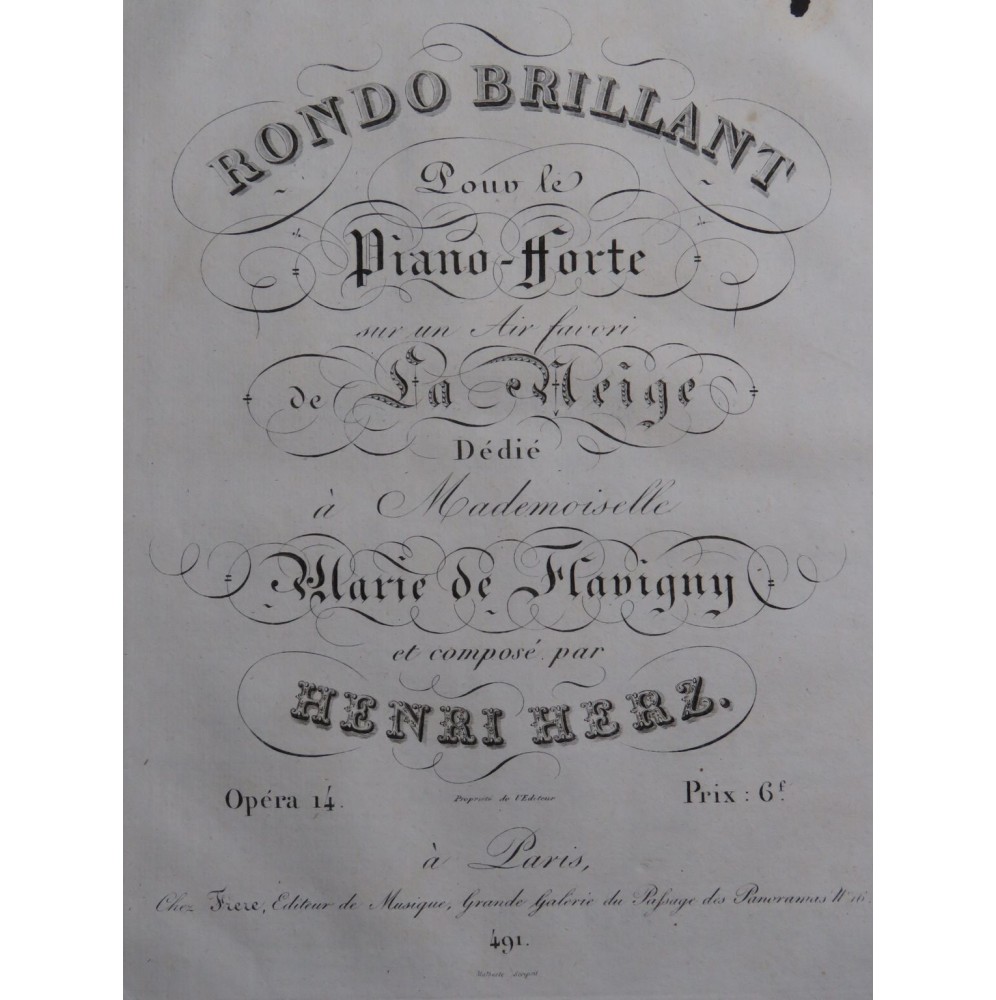 RONDO BRILLANT
Pour le
Piano-Forte
sur un Air favori
de La Neige
Dédié
à Mademoiselle
Marie de Flavigny
et composé par
HENRI HERZ.
Opéra 14. Propriété de l'Editeur Prix : 6f.
à Paris,
Chez Frere, Editeur de Musique, Grande Galérie du Passage des Panoramas No. 16.
491.